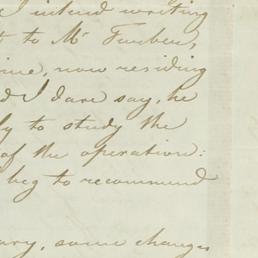 I intend writing
to Mr
now residing
I dare say, he
to study the
of the operation:
beg to recommend
some changes